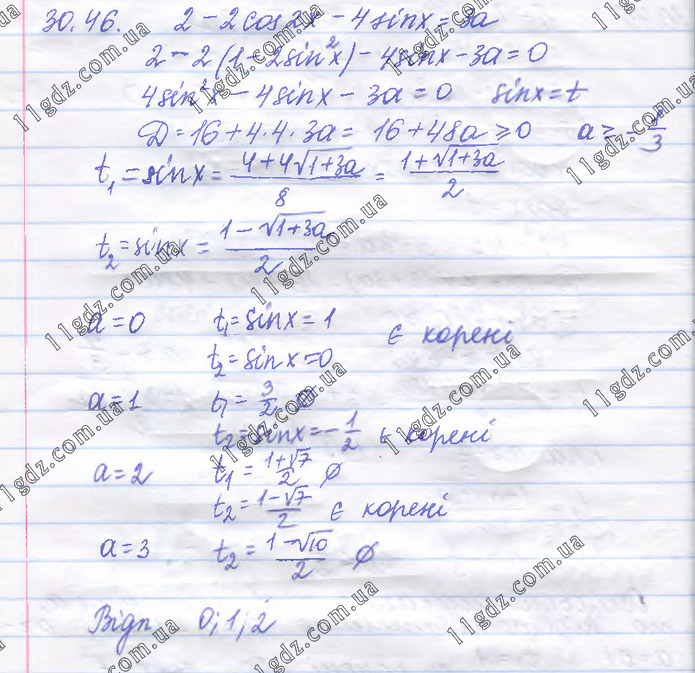 30.46. 2 - 2cos2x - 4sinx = 3a
2 - 2(1 - 2sin²x) - 4sinx - 3a = 0
4sin²x - 4sinx - 3a = 0 sinx = t
D = 16 + 4·4·3a = 16 + 48a ≥ 0 a ≥ -1/3
t₁ = sinx = (4 + 4√(1+3a))/8 = (1 + √(1+3a))/2
t₂ = sinx = (1 - √(1+3a))/2
a = 0 t₁ = sinx = 1
t₂ = sinx = 0 є корені
a = 1 t₁ = 3/2 ∅
t₂ = sinx = -1/2 є корені
a = 2 t₁ = (1+√7)/2 ∅
t₂ = (1-√7)/2 є корені
a = 3 t₂ = (1-√10)/2 ∅
Відп. 0; 1; 2
11gdz.com.ua